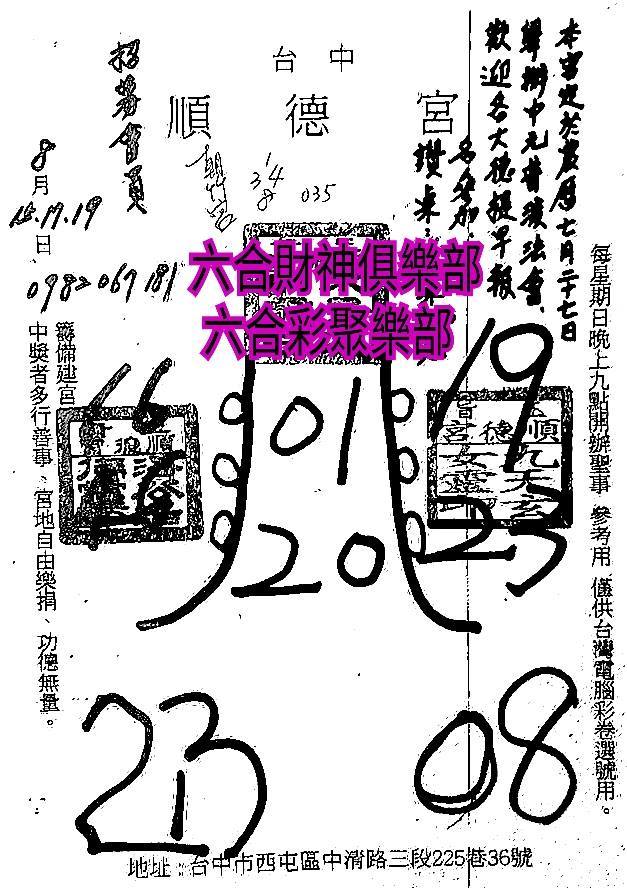 台中
順德宮
本宮定於農曆七月二十七日
舉辦中元普渡法會、
歡迎各大德提早報
名參加
讚桌
招募會員
朝竹宮
1
34
8
035
8月
15.17.19
日
0982067181
六合財神俱樂部
六合彩聚樂部
每星期日晚上九點開辦聖事 參考用 僅供台灣電腦彩卷選號用。
籌備建宮
中獎者多行善事、宮地自由樂捐、功德無量。
16
01
19
20
23
23
08
地址：台中市西屯區中清路三段225巷36號